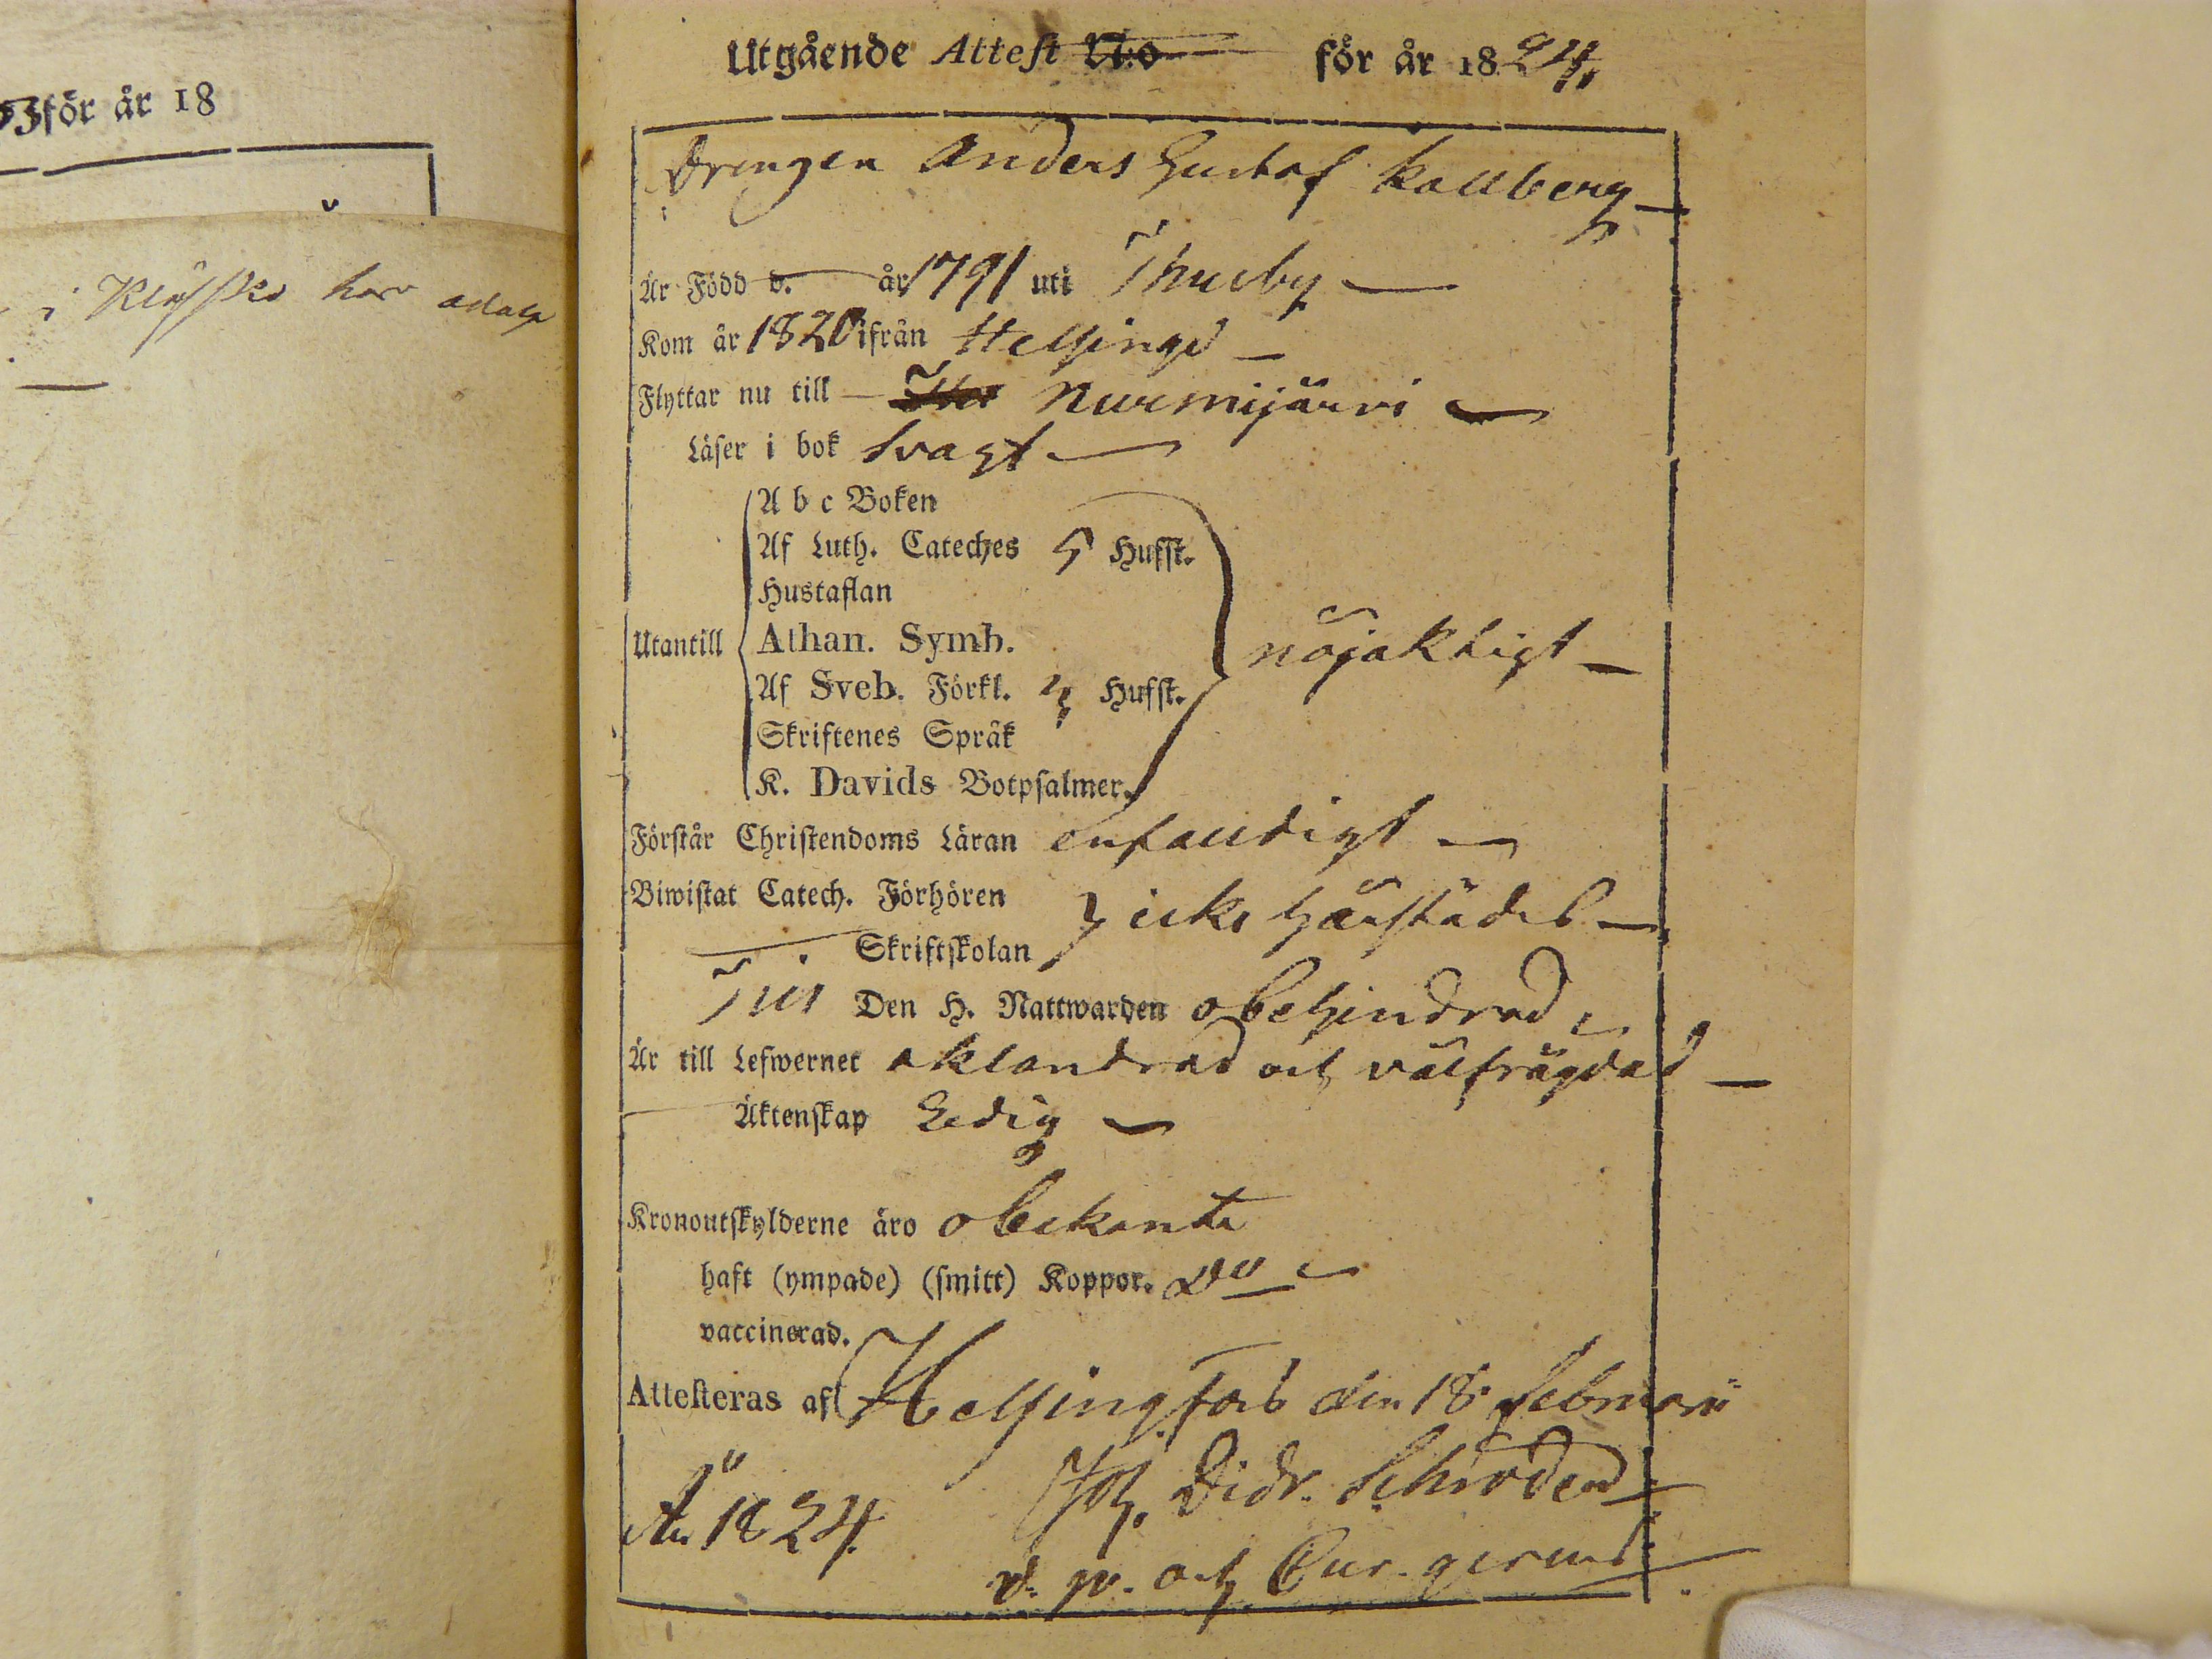 för år 18
i Kläfskö har
Utgående Attest N:o för år 1824.
Drengen Anders Gustaf Kallberg
Är Född d. år 1791 uti Thusby
Kom år 1820 ifrån Helsinge
Flyttar nu till Nurmijärvi
Läser i bok svagt
A b c Boken
Af Luth. Cateches 5 Hufst.
Hustaflan
Utantill Athan. Symb. nöjaktigt
Af Sveb. Förkl. Hufst.
Skriftenes Språk
K. Davids Botpsalmer.
Förstår Christendoms Läran enfaldigt
Biwistat Catech. Förhören
icke härstädes
Skriftskolan
Till Den H. Nattwarden obehindrad
Är till Lefwernet oklandrad och välfrägdad
Äktenskap Ledig
Kronoutskylderne äro obekanta
haft (ympade) (smitt) Koppor. Do
vaccinerad.
Attesteras af Helsingfors den 18 Februarii
År 1824. Joh. Didr. Schröder
v. p. och Cur. gerens